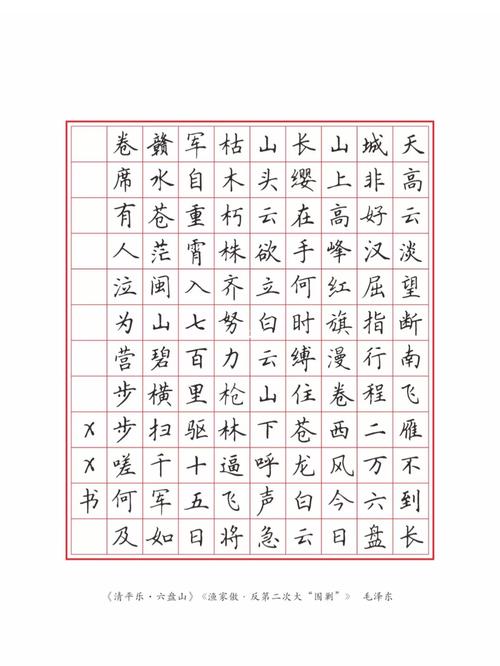 天高云淡望断南飞雁不到长
城非好汉屈指行程二万六盘
山上高峰红旗漫卷西风今日
长缨在手何时缚住苍龙白云
山头云欲立白云山下呼声急
枯木朽株齐努力枪林逼飞将
军自重霄入七百里驱十五日
赣水苍茫闽山碧横扫千军如
卷席有人泣为营步步嗟何及
XX书
《清平乐·六盘山》《渔家傲·反第二次大“围剿”》 毛泽东